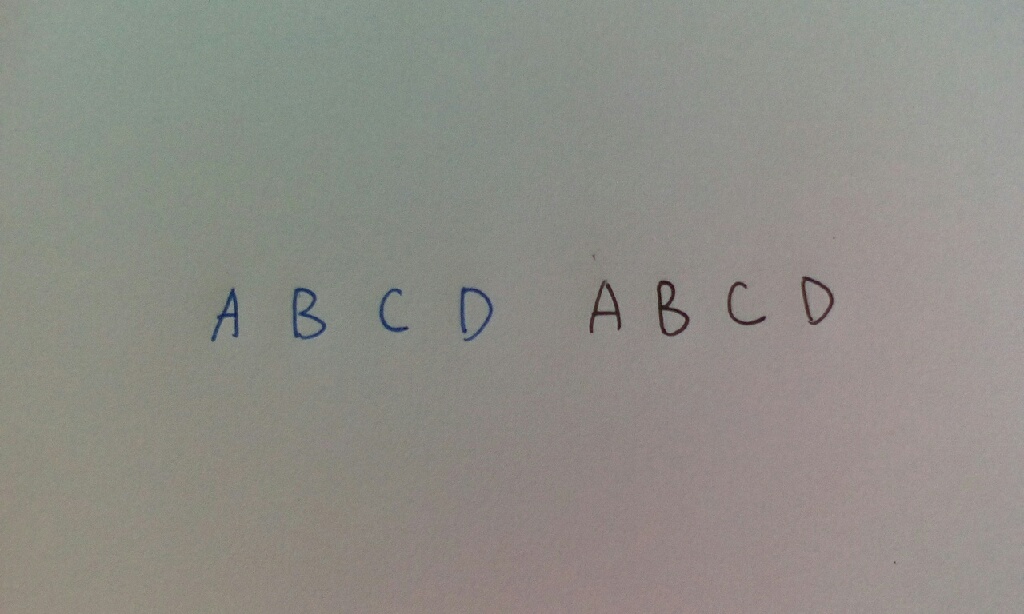 A B C D A B C D